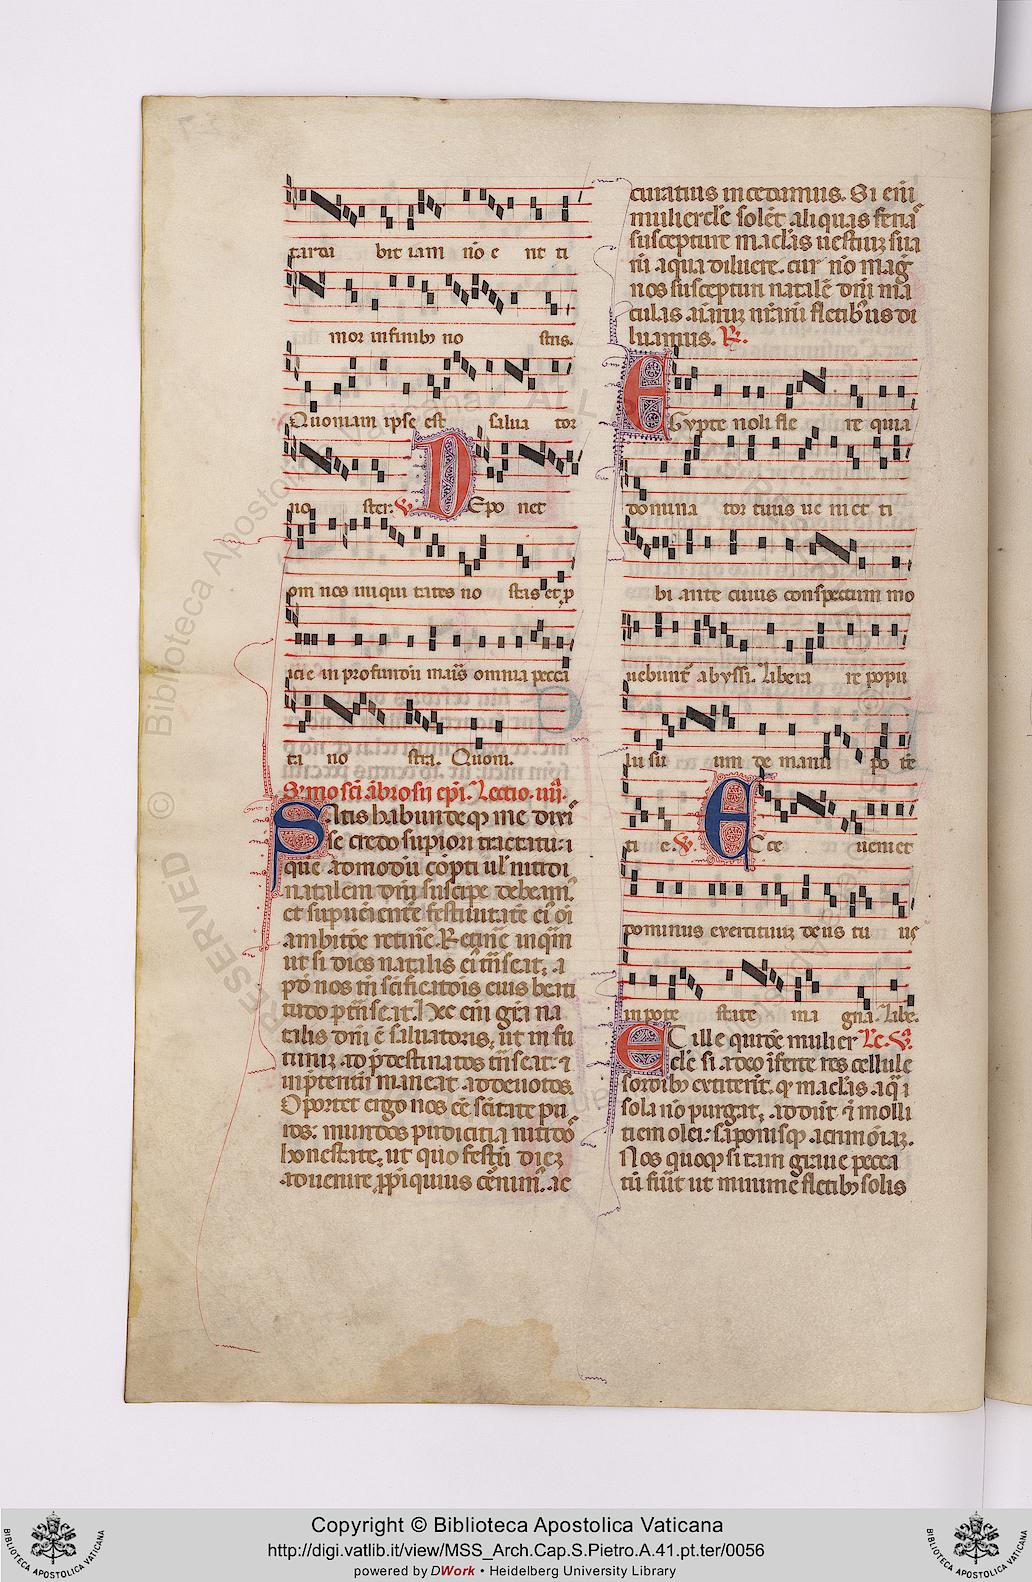 tarda bit iam nō e rit ti
mor in finibꝫ no stris.
Quoniam ipse est salua tor
no ster. ℣ DEpo net
om nes iniqui tates no stras et p
iciet in profundū maris omnia pecca
ta no stra. Quoni.
ẜmo sc̄i ābrosij ep̄i. Lectio. iiij.
Satis habunde qꝫ me dixi
se credo supiori tractatu:
que admodū
natalem dn̄i suscipe debeam̄.
et supueniente festiuitate
ambitōe retinē. Retinē inqͣm
ut si dies natalis transeat. a
pd̓ nos tn̄ sc̄ificatōis eius beati
tudo pmaneat. Hec eni gr̄a na
talis dn̄i ē saluatoris, ut in fu
turuꝫ ad p̄destinatos trāseat. ⁊
in p̄teritū maneat ad deuotos.
Oportet ergo nos eē sc̄itate pu
ros: mundos pudicitia nitidos
honestate, ut quo festū dieꝫ
aduenire ꝓpiquius cernim̄. ac
curatius incedamus. Si eni
muliercle solēt aliquas feria
suscepture maclas uestiuꝫ sua
rū aqua diluere. cur nō mag
nos suscepturi natalē dn̄i ma
culas aīaruꝫ nr̄arū fletibus di
luamus. ℟.
EGypte noli fle re quia
domina tor tuus ue niet ti
bi ante cuius conspectum mo
uebunt abyssi. libera re popu
lu su um de manu po tē
ti e. ℣ ECce ueniet
dominus exercituuꝫ deus tu us
in pote state ma gna. Libe.
ET ille quidē mulier Le. v̓.
cle si adeo iferte res cellule
sordibꝫ extiterit. qͥ maclas aqͣ
sola nō purgat, addūt ⁊ molli
tiem olei: saponisqꝫ acrimōiaꝫ.
Nos quoqꝫ si tam graue pecca
tū fuīt ut minime fletibꝫ solis
RESERVED © Biblioteca Apostolica Vaticana ALL
Copyright © Biblioteca Apostolica Vaticana
http://digi.vatlib.it/view/MSS_Arch.Cap.S.Pietro.A.41.pt.ter/0056
powered by DWork • Heidelberg University Library
BIBLIOTECA APOSTOLICA VATICANA
BIBLIOTECA APOSTOLICA VATICANA